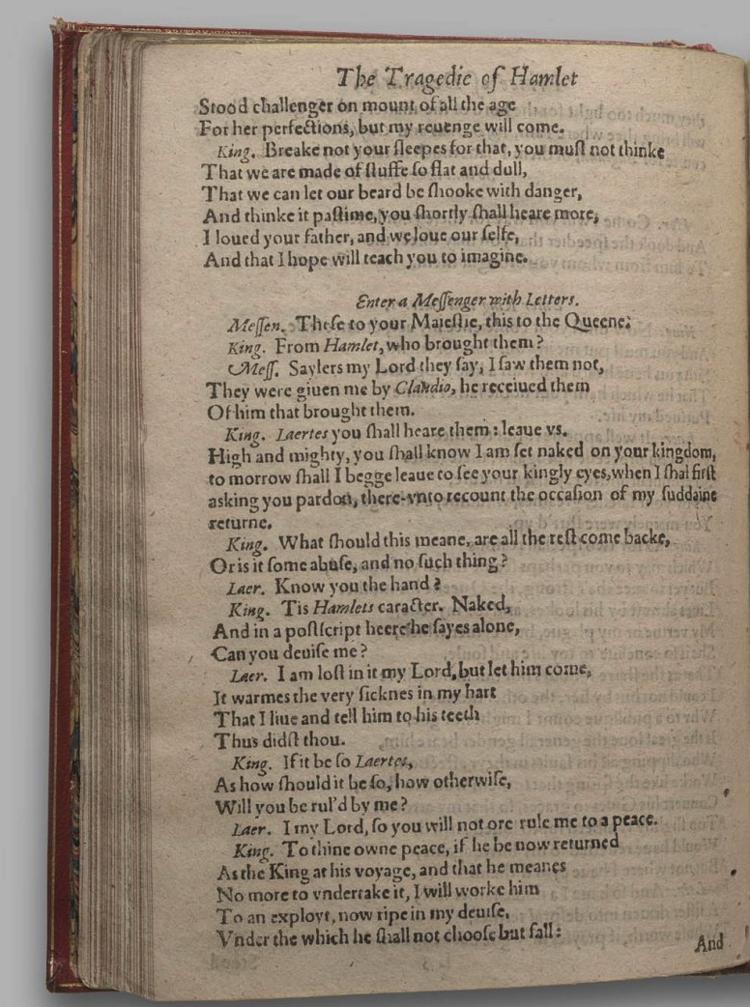 The Tragedie of Hamlet
Stood challenger on mount of all the age
For her perfections, but my reuenge will come.
King. Breake not your sleepes for that, you must not thinke
That we are made of stuffe so flat and dull,
That we can let our beard be shooke with danger,
And thinke it pastime, you shortly shall heare more,
I loued your father, and we loue our selfe,
And that I hope will teach you to imagine.
Enter a Messenger with Letters.
Messen. These to your Maiestie, this to the Queene:
King. From Hamlet, who brought them?
Mess. Saylers my Lord they say, I saw them not,
They were giuen me by Claudio, he receiued them
Of him that brought them.
King. Laertes you shall heare them: leaue vs.
High and mighty, you shall know I am set naked on your kingdom,
to morrow shall I begge leaue to see your kingly eyes, when I shal first
asking you pardon, there-vnto recount the occasion of my suddaine
returne.
King. What should this meane, are all the rest come backe,
Or is it some abuse, and no such thing?
Laer. Know you the hand?
King. Tis Hamlets caracter. Naked,
And in a postscript heere he sayes alone,
Can you deuise me?
Laer. I am lost in it my Lord, but let him come,
It warmes the very sicknes in my hart
That I liue and tell him to his teeth
Thus didst thou.
King. If it be so Laertes,
As how should it be so, how otherwise,
Will you be rul'd by me?
Laer. I my Lord, so you will not ore rule me to a peace.
King. To thine owne peace, if he be now returned
As the King at his voyage, and that he meanes
No more to vndertake it, I will worke him
To an exployt, now ripe in my deuise,
Vnder the which he shall not choose but fall:
And